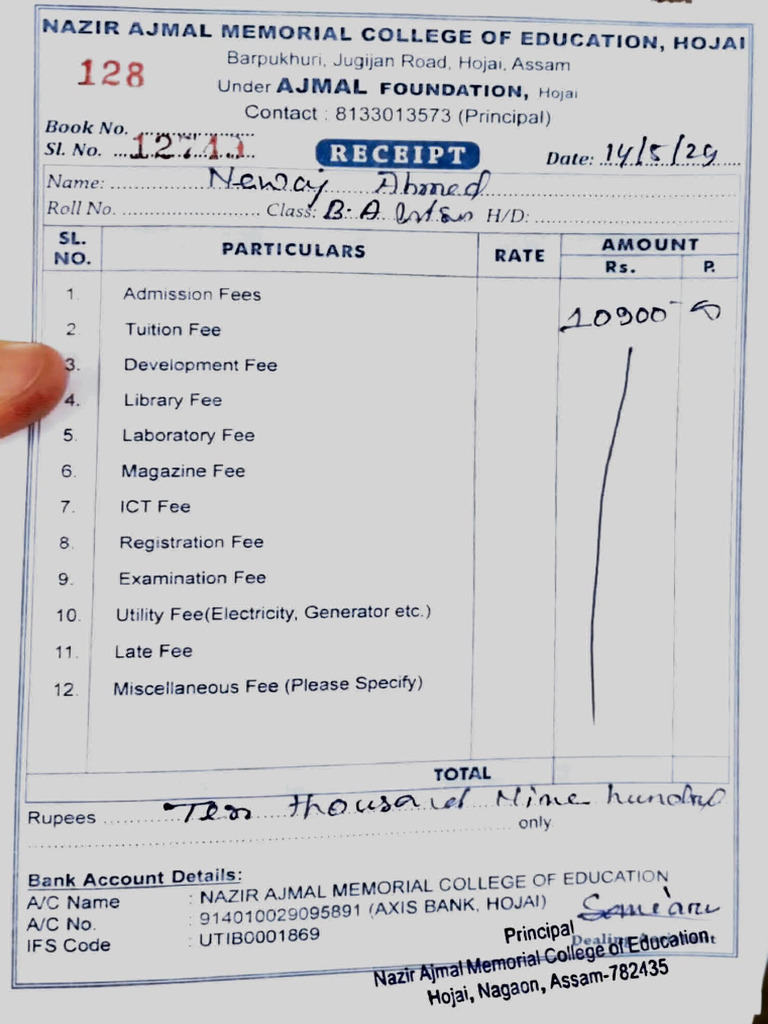 NAZIR AJMAL MEMORIAL COLLEGE OF EDUCATION, HOJAI
Barpukhuri, Jugijan Road, Hojai, Assam
128
Under AJMAL FOUNDATION, Hojai
Contact : 8133013573 (Principal)
Book No.
Sl. No. 12711 RECEIPT Date: 14/5/29
Name: Newaj Ahmed
Roll No. Class: B.A. H/D:
SL. NO. PARTICULARS RATE AMOUNT
Rs. P.
1. Admission Fees
10900
2. Tuition Fee
3. Development Fee
4. Library Fee
5. Laboratory Fee
6. Magazine Fee
7. ICT Fee
8. Registration Fee
9. Examination Fee
10. Utility Fee(Electricity, Generator etc.)
11. Late Fee
12. Miscellaneous Fee (Please Specify)
TOTAL
Rupees Ten thousand Nine hundred
only
Bank Account Details:
A/C Name : NAZIR AJMAL MEMORIAL COLLEGE OF EDUCATION
A/C No. : 914010029095891 (AXIS BANK, HOJAI)
IFS Code : UTIB0001869
Dealing Assistant
Principal
Nazir Ajmal Memorial College of Education
Hojai, Nagaon, Assam-782435